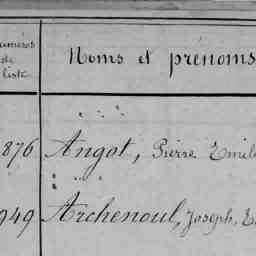 numéros
de
liste
Noms et prénoms
876 Angot, Pierre Emile
949 Archenoul, Joseph,